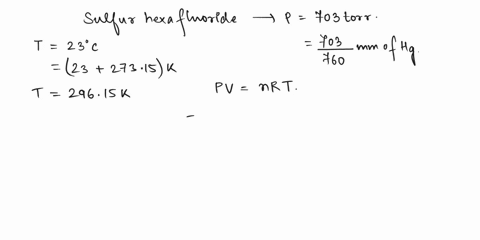 Sulfur hexafluoride → P = 703 torr.
T = 23°C
= 703/760 mm of Hg.
= (23 + 273.15) K
T = 296.15 K
PV = nRT.
-